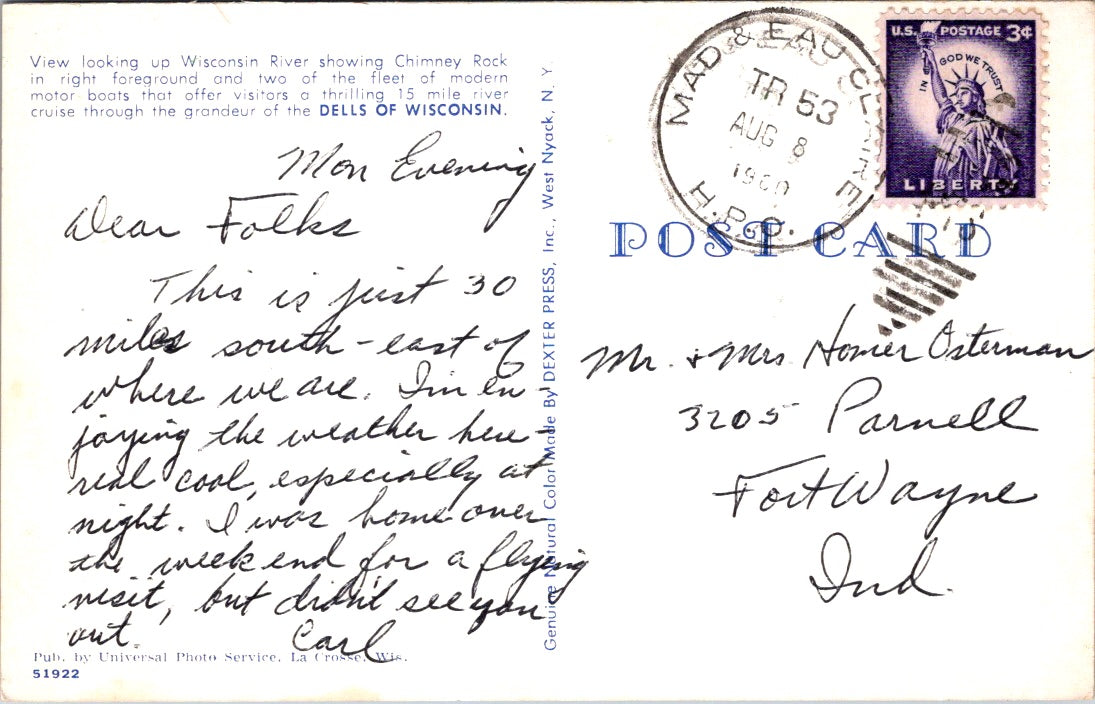 View looking up Wisconsin River showing Chimney Rock
in right foreground and two of the fleet of modern
motor boats that offer visitors a thrilling 15 mile river
cruise through the grandeur of the DELLS OF WISCONSIN.
Mon Evening
Dear Folks
This is just 30
miles south-east of
where we are. I'm en-
joying the weather here-
real cool, especially at
night. I was home over
the week end for a flying
visit, but didn't see you
out.
Carl
Pub. by Universal Photo Service, La Crosse, Wis.
51922
Genuine Natural Color Made By DEXTER PRESS, Inc., West Nyack, N. Y.
MAD & EAU CLAIRE
TR 53
AUG 8
1960
H.P.O.
U.S. POSTAGE 3¢
IN GOD WE TRUST
LIBERTY
POST CARD
Mr. & Mrs. Homer Osterman
3205 Parnell
Fort Wayne
Ind.